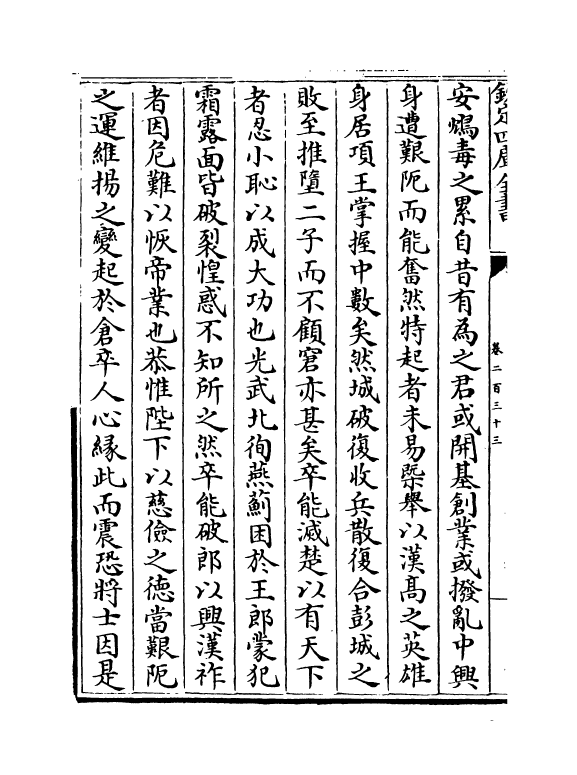 欽定四庫全書
卷二百三十三
安鴆毒之累自昔有為之君或開基創業或撥亂中興
身遭艱阨而能奮然特起者未易槩舉以漢髙之英雄
身居項王掌握中數矣然城破復收兵散復合彭城之
敗至推墮二子而不顧窘亦甚矣卒能滅楚以有天下
者忍小恥以成大功也光武北徇燕薊困於王郎蒙犯
霜露面皆破裂惶惑不知所之然卒能破郎以興漢祚
者因危難以恢帝業也恭惟陛下以慈儉之德當艱阨
之運維揚之變起於倉卒人心緣此而震恐將士因是